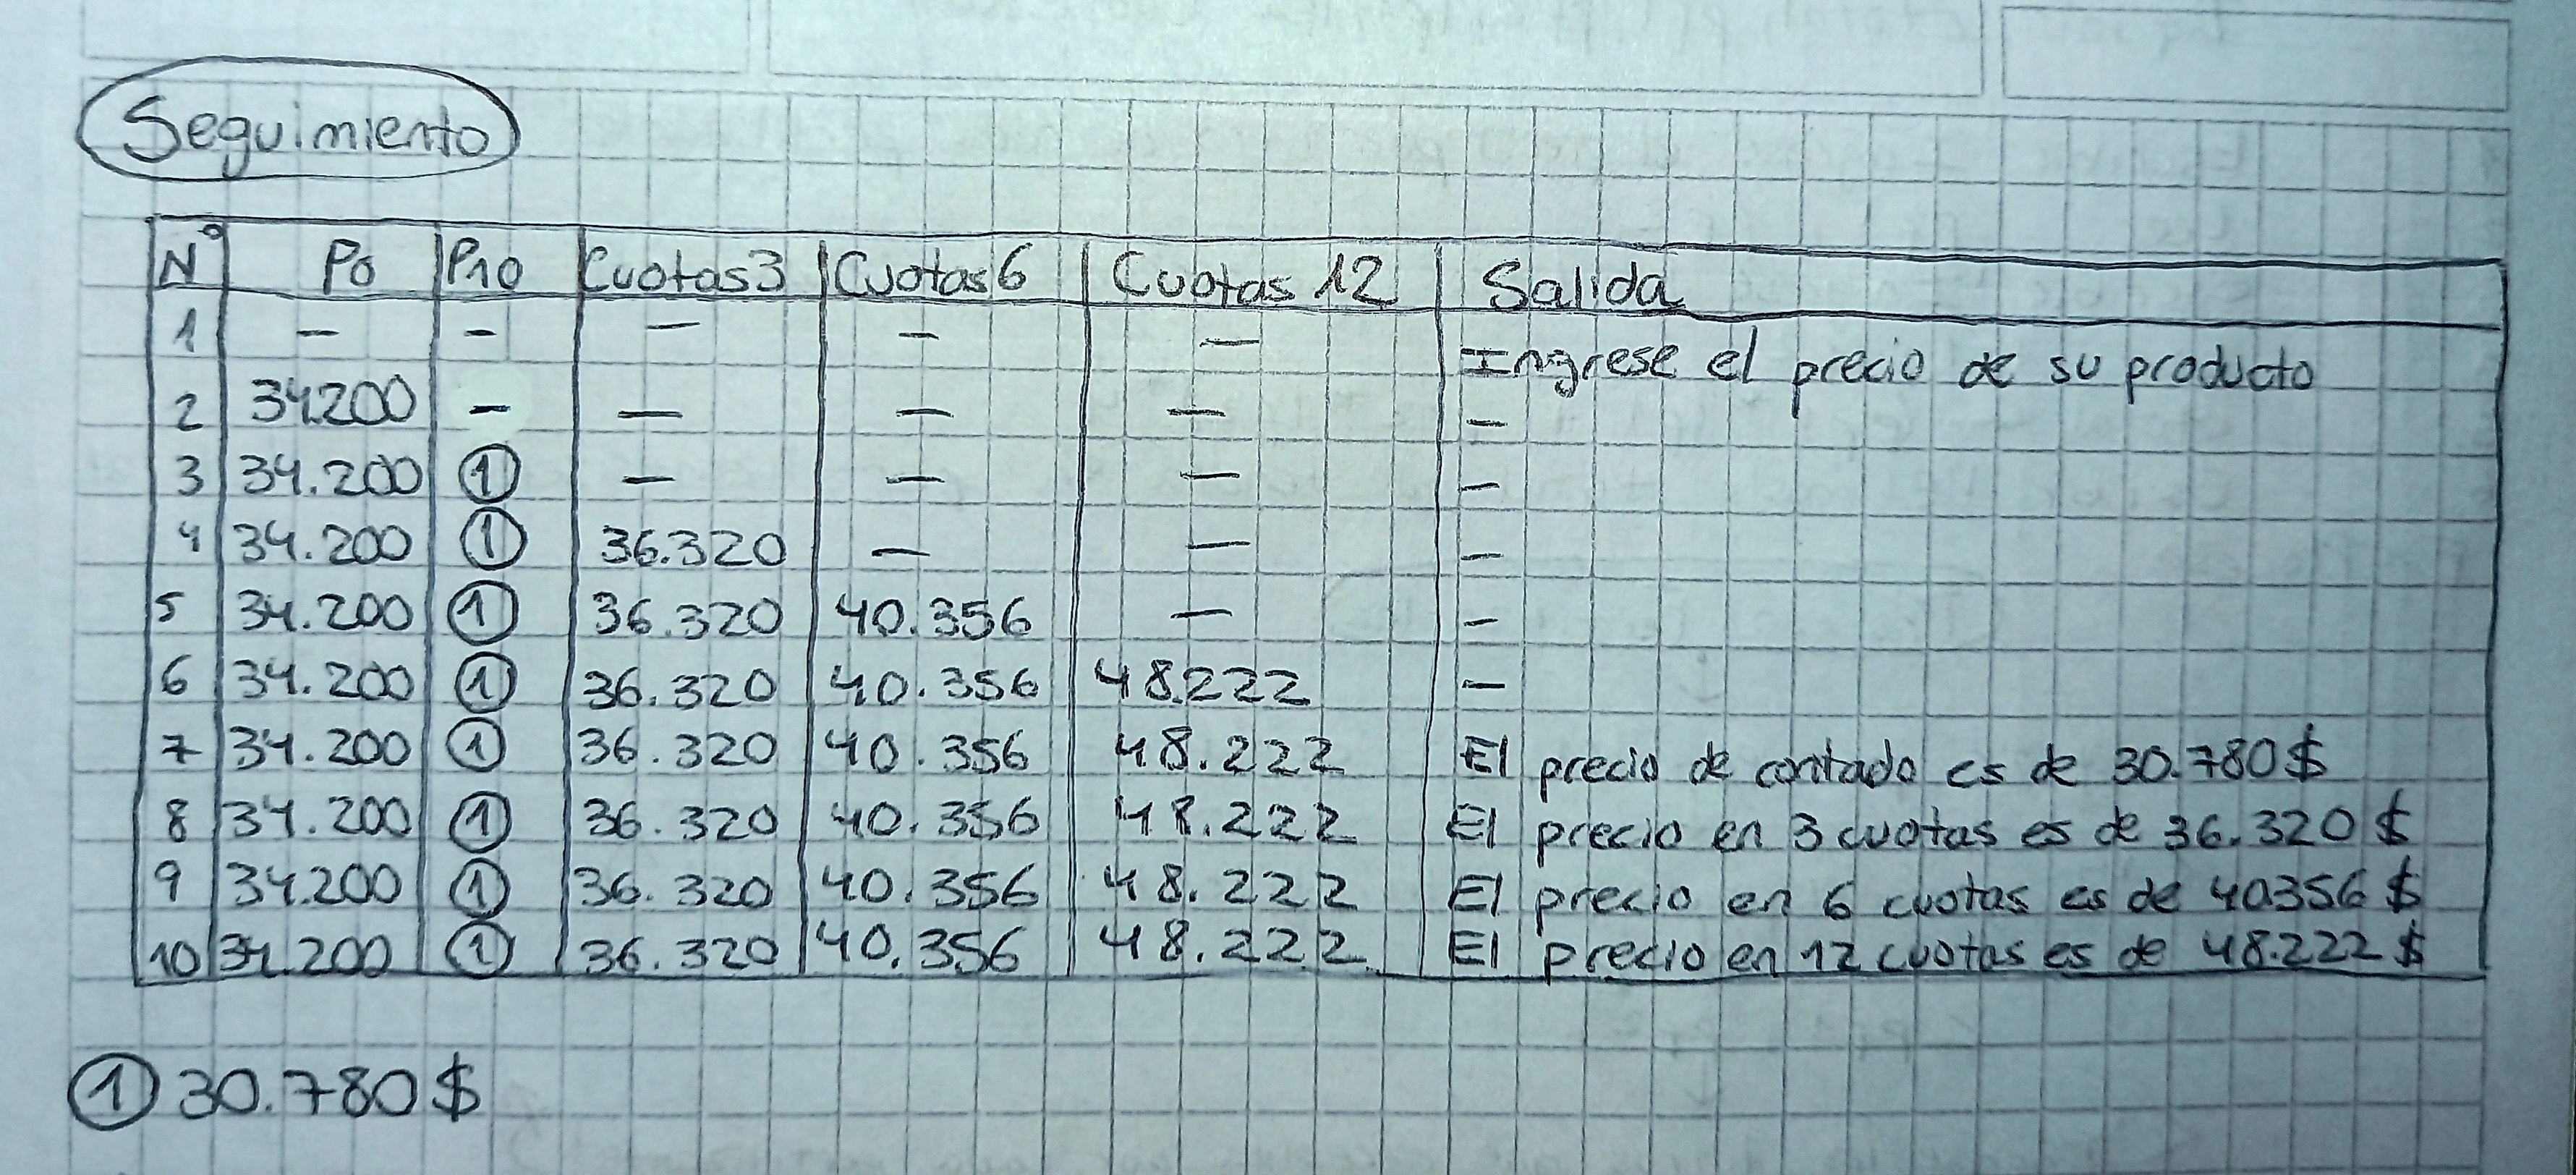 Seguimiento
N° Po P10 Cuotas3 Cuotas6 Cuotas 12 Salida
1 — — — — — Ingrese el precio de su producto
2 34.200 — — — — —
3 34.200 ① — — — —
4 34.200 ① 36.320 — — —
5 34.200 ① 36.320 40.356 — —
6 34.200 ① 36.320 40.356 48.222 —
7 34.200 ① 36.320 40.356 48.222 El precio de contado es de 30.780$
8 34.200 ① 36.320 40.356 48.222 El precio en 3 cuotas es de 36.320$
9 34.200 ① 36.320 40.356 48.222 El precio en 6 cuotas es de 40356$
10 34.200 ① 36.320 40.356 48.222 El precio en 12 cuotas es de 48.222$
① 30.780$